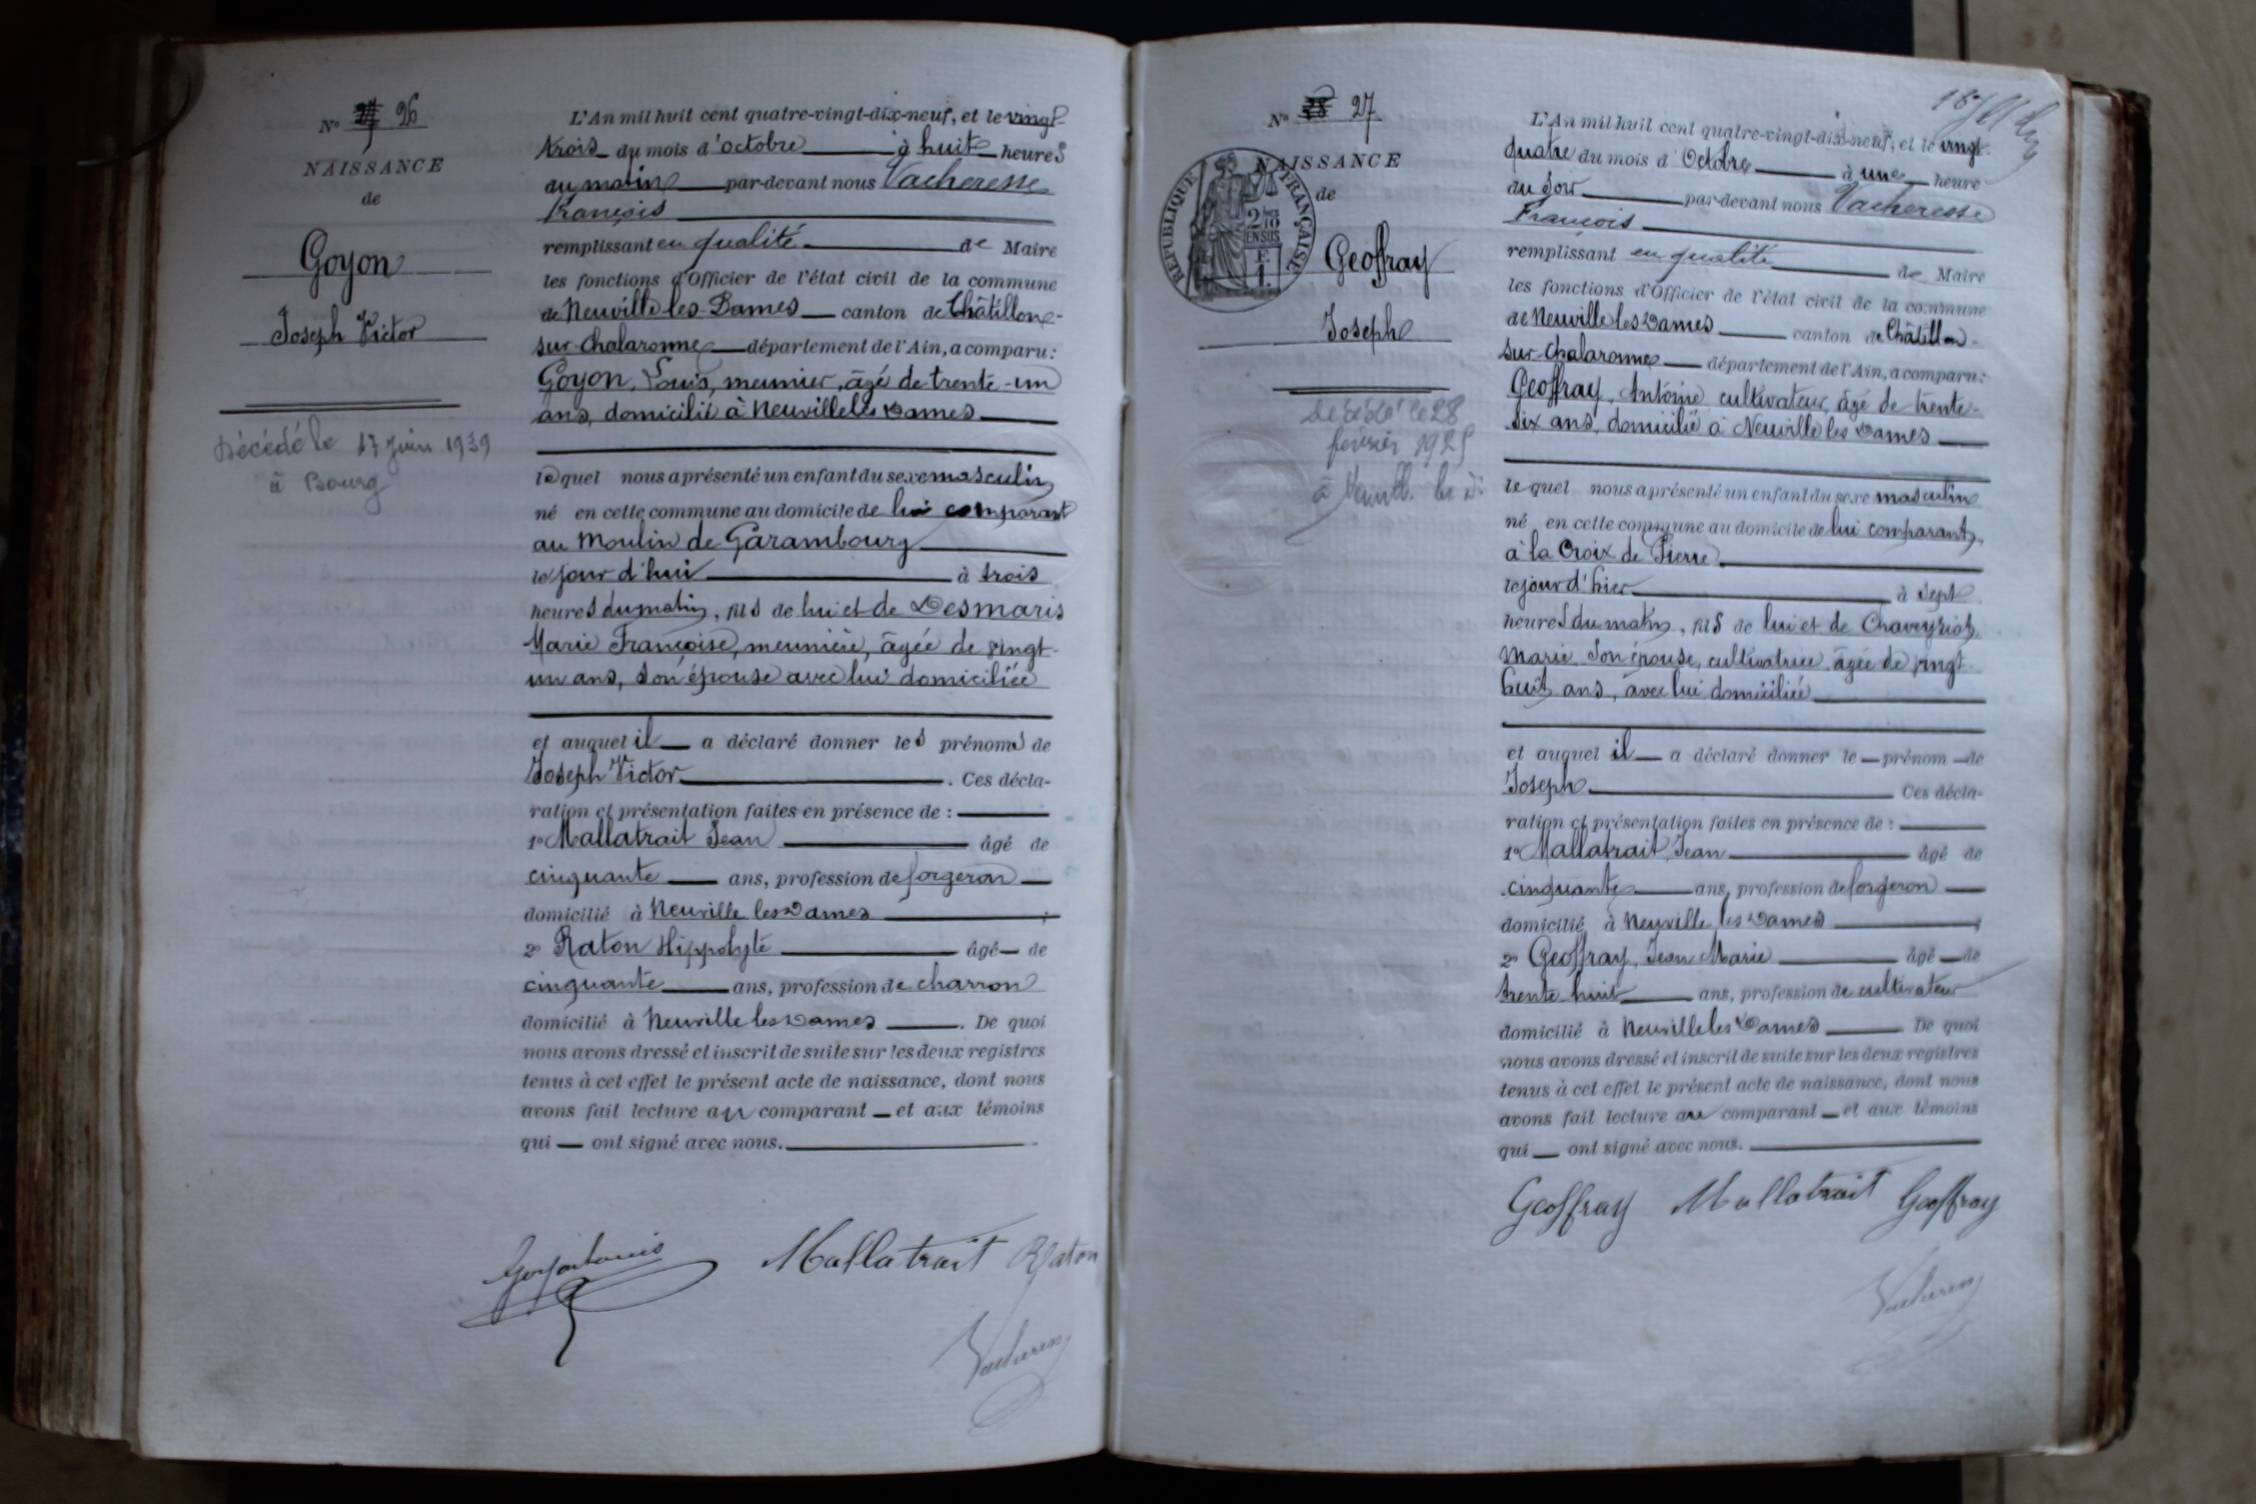 No 26
NAISSANCE
de
Goyon
Joseph Victor
Décédé le 17 juin 1939
à Bourg
L'An mil huit cent quatre-vingt-dix-neuf, et le vingt-
trois du mois d'octobre à huit heures
du matin par-devant nous Vacheresse
François
remplissant en qualité de Maire
les fonctions d'Officier de l'état civil de la commune
de Neuville les Dames canton de Châtillon-
sur-Chalaronne département de l'Ain, a comparu:
Goyon, Louis, meunier, âgé de trente-un
ans, domicilié à Neuville les Dames
lequel nous a présenté un enfant du sexe masculin
né en cette commune au domicile de lui comparant
au Moulin de Garambourg
le jour d'hui à trois
heures du matin, fils de lui et de Desmaris
Marie Françoise, meunière, âgée de vingt-
un ans, son épouse avec lui domiciliée
et auquel il a déclaré donner les prénoms de
Joseph Victor. Ces décla-
ration et présentation faites en présence de :
1° Mallatrait Jean âgé de
cinquante ans, profession de forgeron
domicilié à Neuville les Dames ;
2° Raton Hippolyte âgé de
cinquante ans, profession de charron
domicilié à Neuville les Dames. De quoi
nous avons dressé et inscrit de suite sur les deux registres
tenus à cet effet le présent acte de naissance, dont nous
avons fait lecture au comparant et aux témoins
qui ont signé avec nous.
Goyon Louis Mallatrait Raton
Vacheresse
No 27
NAISSANCE
de
RÉPUBLIQUE FRANÇAISE
2/10
EN SUS
F.
1.
Geoffray
Joseph
Décédé le 28
février 1925
à
L'An mil huit cent quatre-vingt-dix-neuf, et le vingt-
quatre du mois d'Octobre à une heure
du soir par-devant nous Vacheresse
François
remplissant en qualité de Maire
les fonctions d'Officier de l'état civil de la commune
de Neuville les Dames canton de Châtillon-
sur-Chalaronne département de l'Ain, a comparu:
Geoffray, Antoine, cultivateur, âgé de trente-
six ans, domicilié à Neuville les Dames
lequel nous a présenté un enfant du sexe masculin
né en cette commune au domicile de lui comparant,
à la Croix de Pierre
le jour d'hier à sept
heures du matin, fils de lui et de Chaveyriat
Marie, son épouse, cultivatrice, âgée de vingt
huit ans, avec lui domiciliée
et auquel il a déclaré donner le prénom de
Joseph Ces décla-
ration et présentation faites en présence de :
1° Mallatrait, Jean âgé de
cinquante ans, profession de forgeron
domicilié à Neuville les Dames ;
2° Geoffray, Jean Marie âgé de
trente huit ans, profession de cultivateur
domicilié à Neuville les Dames De quoi
nous avons dressé et inscrit de suite sur les deux registres
tenus à cet effet le présent acte de naissance, dont nous
avons fait lecture au comparant et aux témoins
qui ont signé avec nous.
Geoffray Mallatrait Geoffray
Vacheresse